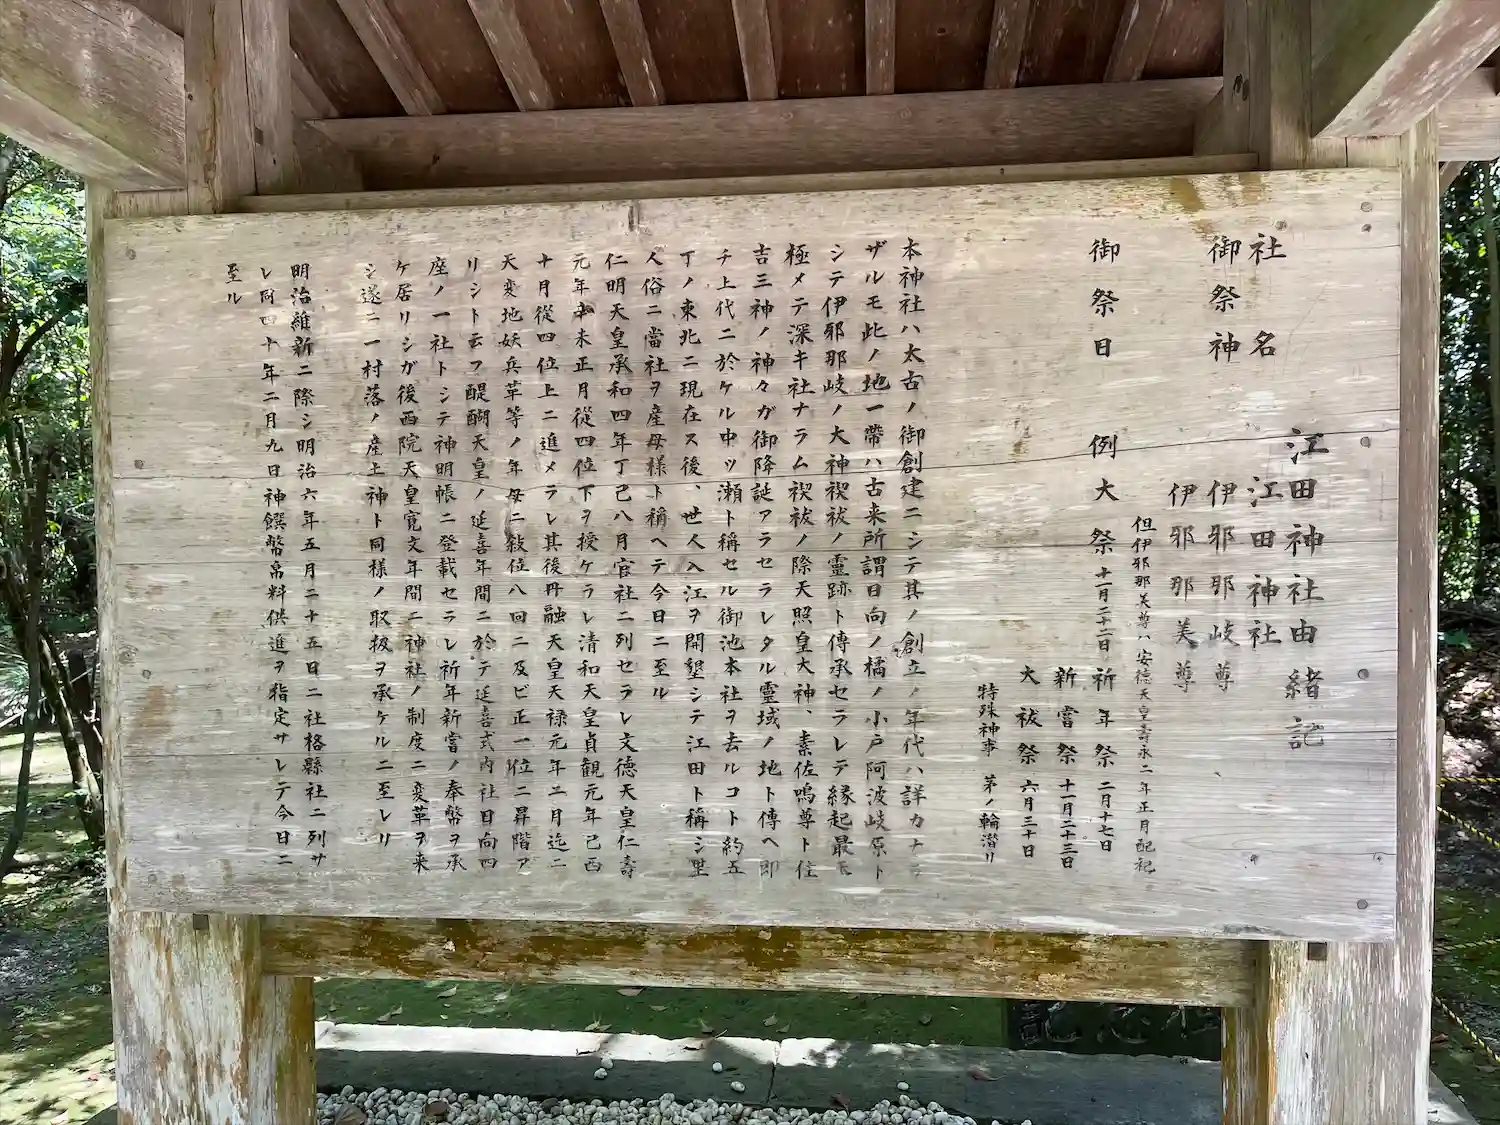 江田神社由緒記
社名 江田神社
御祭神 伊邪那岐尊
伊邪那美尊
但伊邪那美尊ハ安徳天皇壽永二年正月配祀
御祭日 例大祭 十一月二十二日 祈年祭 二月十七日
新嘗祭 十一月二十三日
大祓祭 六月三十日
特殊神事 茅ノ輪潜リ
本神社ハ太古ノ御創建ニシテ其ノ創立ノ年代ハ詳カナラ
ザルモ此ノ地一帶ハ古来所謂日向ノ橘ノ小戸阿波岐原ト
シテ伊邪那岐ノ大神禊祓ノ靈跡ト傳承セラレテ縁起最モ
極メテ深キ社ナラム禊祓ノ際天照皇大神、素佐嗚尊ト住
吉三神ノ神々ガ御降誕アラセラレタル靈域ノ地ト傳ヘ即
チ上代ニ於ケル中ツ瀬ト稱セル御池本社ヲ去ルコト約五
丁ノ東北ニ現在ス後、世人入江ヲ開墾シテ江田ト稱シ里
人俗ニ當社ヲ産母様ト稱ヘテ今日ニ至ル
仁明天皇承和四年丁己八月官社ニ列セラレ文德天皇仁壽
元年辛未正月從四位下ヲ授ケラレ清和天皇貞観元年己酉
十月從四位上ニ進メラレ其後丹融天皇天禄元年二月迄ニ
天変地妖兵革等ノ年毎ニ敍位八回ニ及ビ正一位ニ昇階ア
リシト云フ醍醐天皇ノ延喜年間ニ於テ延喜式内社日向四
座ノ一社トシテ神明帳ニ登載セラレ祈年新嘗ノ奉幣ヲ承
ケ居リシガ後西院天皇寛文年間ニ神社ノ制度ニ変革ヲ来
シ遂ニ一村落ノ産土神ト同様ノ取扱ヲ承ケルニ至レリ
明治維新ニ際シ明治六年五月二十五日ニ社格縣社ニ列サ
レ同四十年二月九日神饌幣帛料供進ヲ指定サレテ今日ニ
至ル